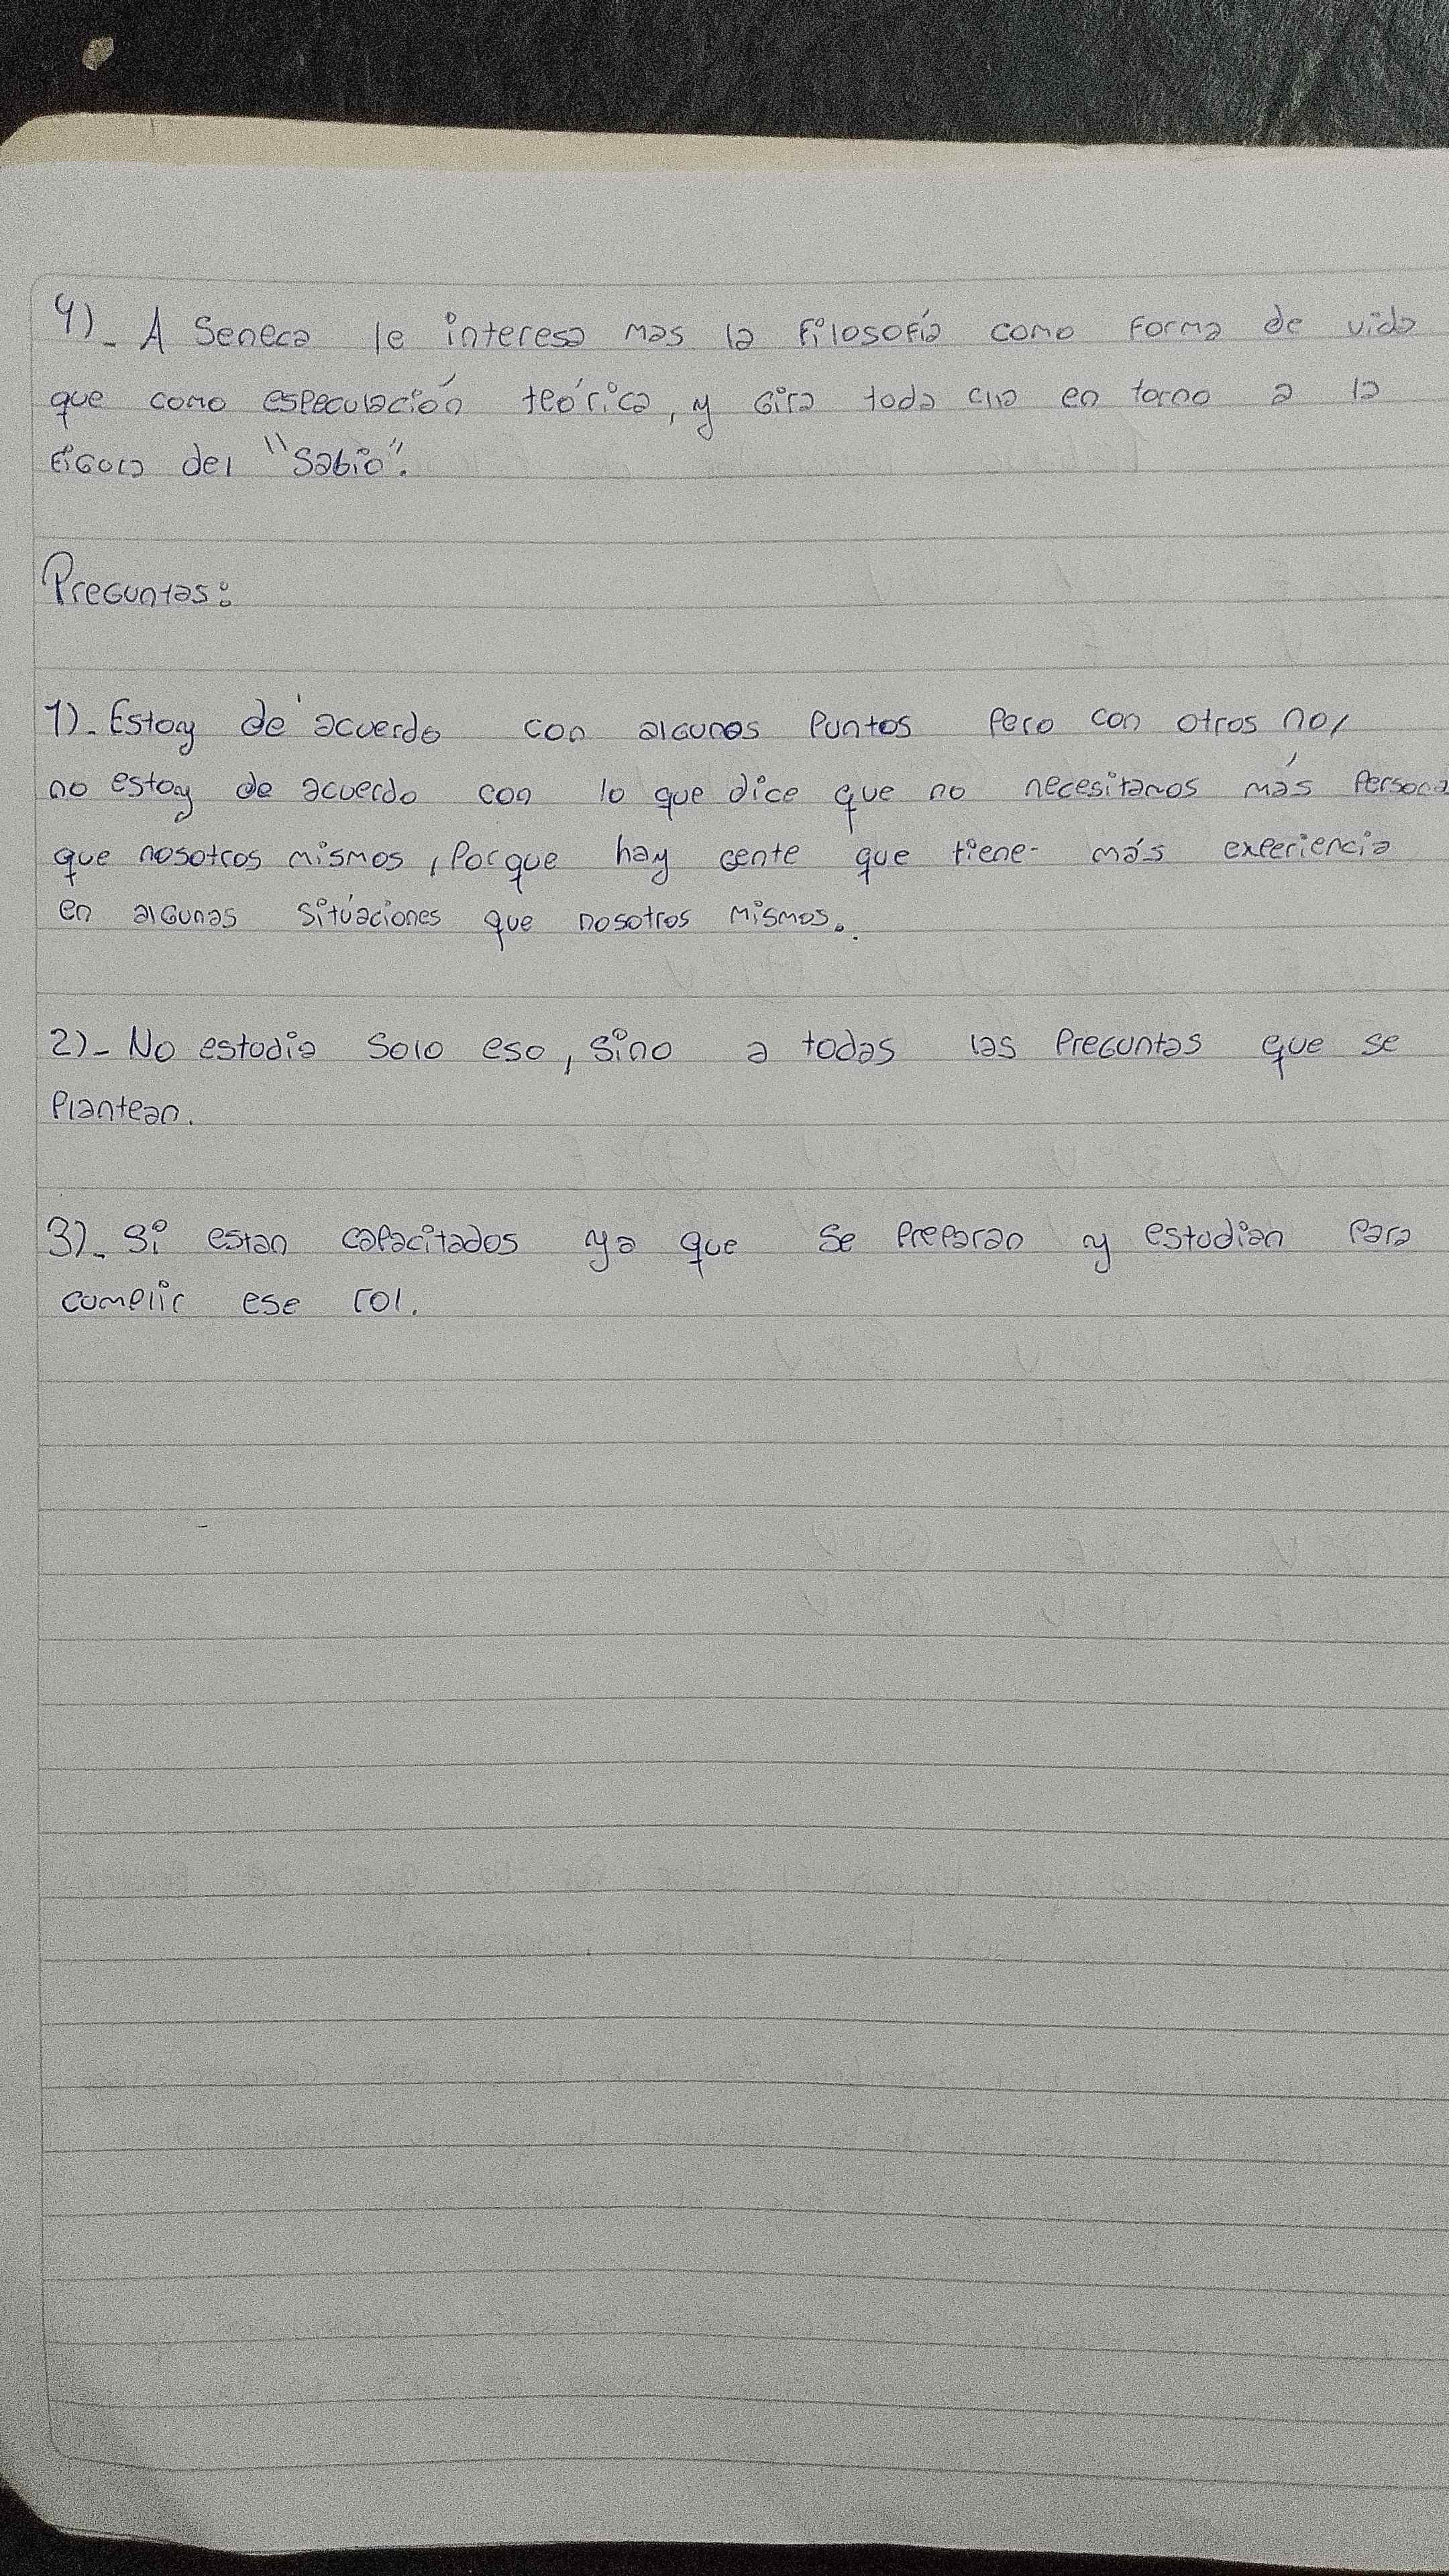 4)_ A Seneca le interesa mas la Filosofía como Forma de vida
que como especulación teórica, y Gira toda ella en torno a la
FiGura del "Sabio".
PreGuntas:
1)_ Estoy de acuerdo con alGunos Puntos Pero con otros no,
no estoy de acuerdo con lo que dice que no necesitamos más Persona
que nosotros mismos, Porque hay Gente que tiene más experiencia
en alGunas Situaciones que nosotros mismos.
2)_ No estudia Solo eso, sino a todas las PreGuntas que se
Plantean.
3)_ Si estan capacitados ya que se Preparan y estudian Para
cumplir ese rol.